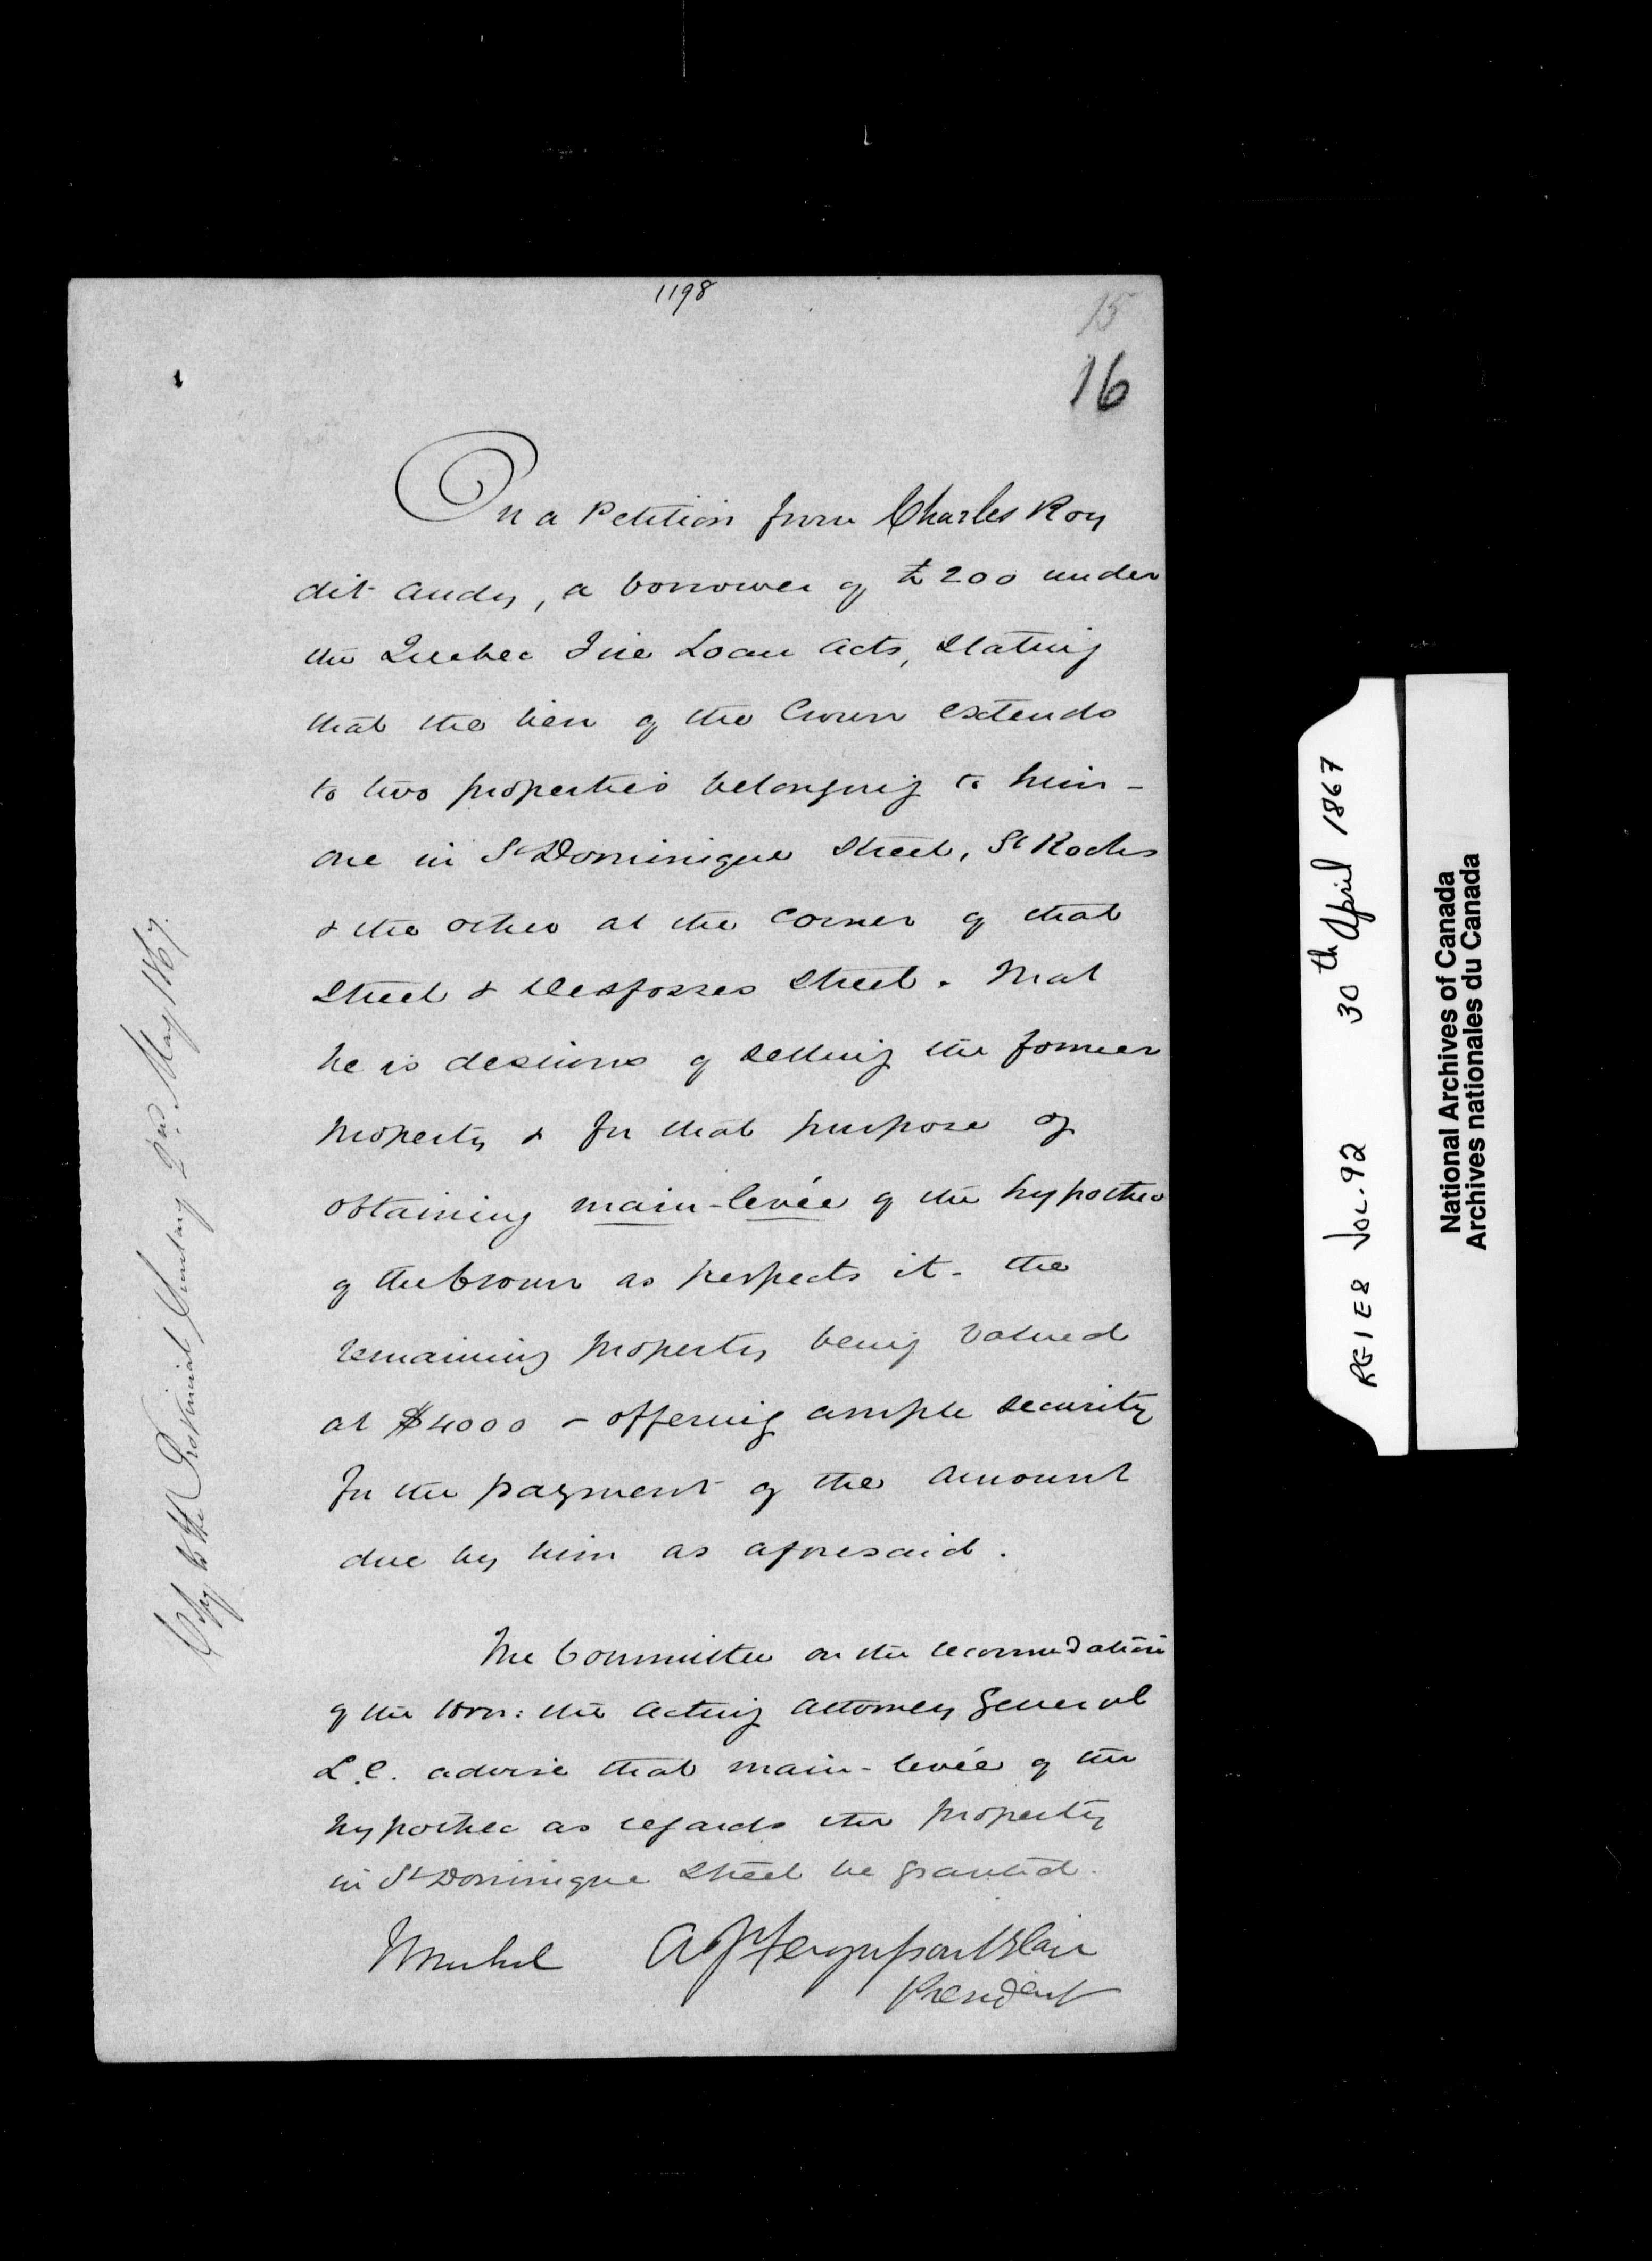 1198
15
16
On a Petition from Charles Roy
dit Audy, a borrower of £200 under
the Quebec Fire Loan Acts, Stating
that the lien of the Crown extends
to two properties belonging to him -
one in St Dominique Street, St Rochs
& the other at the corner of that
Street & Desfosses Street. That
he is desirous of selling the former
property & for that purpose of
obtaining main-levée of the hypothec
of the Crown as respects it - the
remaining property being valued
at $4000 - offering ample security
for the payment of the amount
due by him as aforesaid.
The Committee on the recommdation
of the Hon: the Acting Attorney General
L.C. advise that main-levée of the
hypothec as regards the property
in St Dominique Street be granted.
A J Fergusson Blair
President
Copy to the Provincial Secretary 2nd May 1867.
RG1E8 VOL. 92 30th April 1867
National Archives of Canada
Archives nationales du Canada